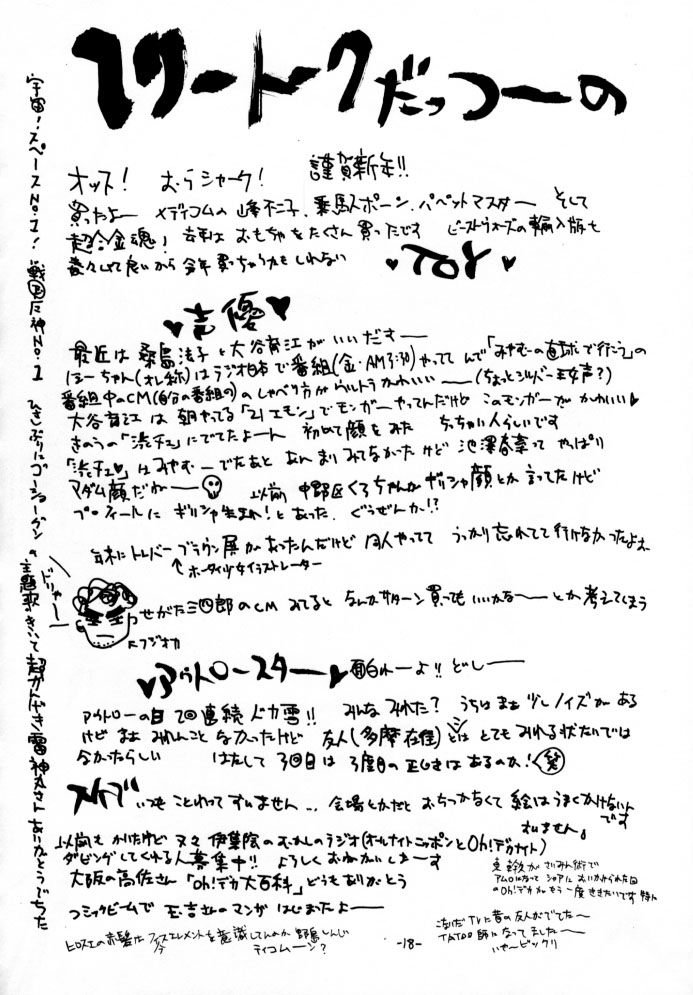 フリートークだっつーの
オッス！ むらシャーク！ 謹賀新年!!
買ったよー メディコムの峰不二子、乗馬スポーン、パペットマスター そして
超合金魂！ 去年は おもちゃをたくさん買ったです ビーストウォーズの輸入版も
着々として良いから今年 買っちゃうかもしれない ♥TOY♥
♥声優♥
最近は 桑島法子と大谷育江がいいだすー
ほーちゃん(オレ称)はラジオ日本で番組(金・AM3:30)やってて んで「みやむーの直球で行こう」の
番組中のCM(自分の番組の)のしゃべり方がウルトラかわいいー(ちょっとシルバー王女声？)
大谷育江は 朝やってる「21エモン」でモンガーやってんだけど このモンガーがかわいい♥
きのうの「渋チェ」にでてたよーん 初めて顔をみた ちっちゃい人らしいです
「渋チェ♥」はみやむーでたあと あんまりみてなかったけど 池澤春菜って やっぱり
マダム顔だがー 以前 中野区くろちゃんが ギリシャ顔とか言ってたけど
プロフィールに ギリシャ生まれ！とあった ぐうぜんか!?
年末に トレバー・ブラウン展があったんだけど 同人やってて うっかり忘れてて行けなかったよォ
↑ホータイ少女イラストレーター
ドリャー
せがた三四郎のCM みてると なんかサターン買ってもいいかなー とか考えてしまう
↖フジオカ
♥アウトロースター♥ 面白れーよ!! どしー
アウトローの日 2回連続ドカ雪!! みんな みれた？ うちは まぁ 少しノイズがある
けど まぁ みれんこと なかったけど 友人(多摩在住)とは とても みれる状たいでは
なかったらしい はたして 3回目は 3度目の正じきはあるのか！(笑)
スケブ いつも ことわってすいません… 会場とかだと おちつかなくて 絵はうまくかけないん
です
すいません。
以前もかいたけど 又々 伊集院のむかしのラジオ(オールナイトニッポンとOh!デカナイト)
ダビングしてくれる人募集中!! よろしく おねがいしまーす
大阪の高佐さん「Oh!デカ大百科」どうもありがとう
東幹久がさいみん術で
アムロになって シャアに おいかけられた回
のOh!デカがもう一度ききたいです 特に
コミックビームで 玉吉さんのマンガ はじまったよー
ヒロスエの赤髪は フィフスエレメントを意識してんのか 野島しんじ
ティコムーン？
こないだ TVに昔の友人がでてたー
TATOO師になってましたー
いやービックリ
-18-
宇宙！スペースNo.1！ 戦国魔神No.1 ひさしぶりにゴーショーグンの主題歌きいて超かんげき 雷神丸さん ありがとうでちた